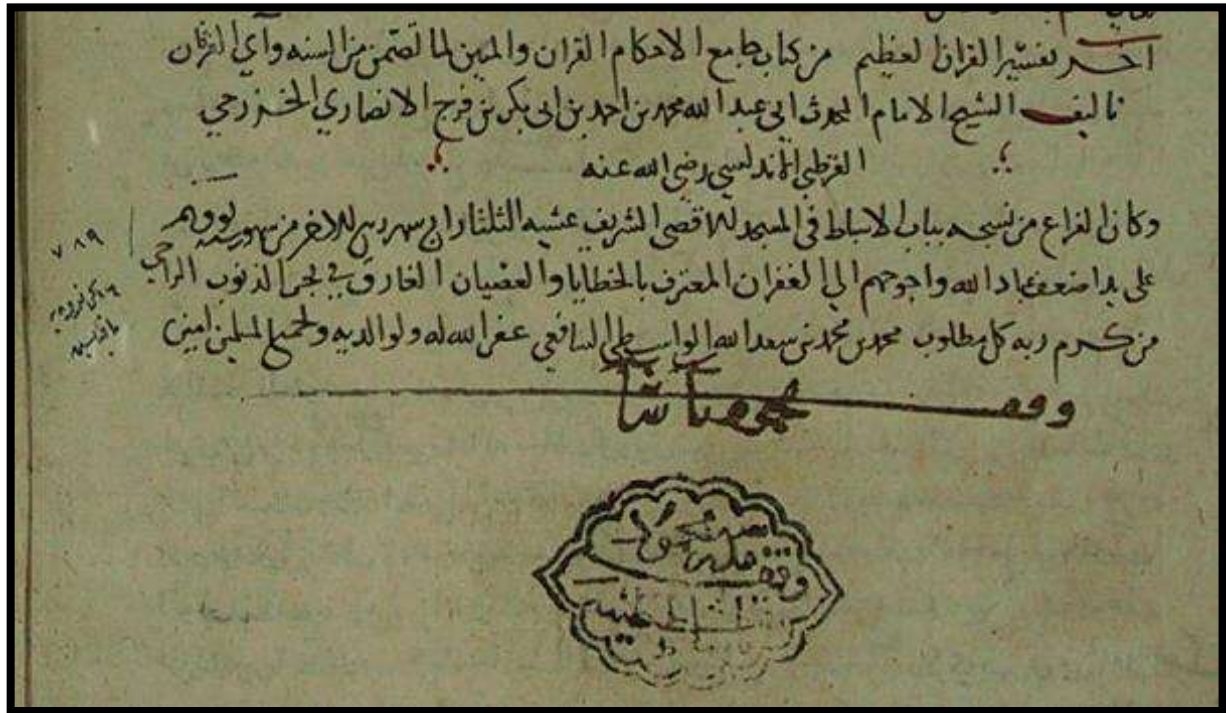 آخر تفسير القران العظيم من كتاب جامع الاحكام القران والمبين لما تضمن من السنه وآي الفرقان
تاليف الشيخ الامام المحدث ابي عبد الله محمد بن احمد بن ابي بكر بن فرج الانصاري الخزرجي
القرطبي الاندلسي رضي الله عنه
وكان الفراغ من نسخه بباب الاسباط في المسجد الاقصى الشريف عشيه الثلثا رابع شهر ربيع الاخر من شهور سنه
على يد اضعف عباد الله واحوجهم الي الغفران المعترف بالخطايا والعصيان الغارق في بحر الذنوب الراجي
من كرم ربه كل مطلوب محمد بن محمد بن سعد الله الواسطي الشافعي عفر الله له ولوالديه ولجميع المسلمين امين
٧٨٩
وقف محمود پاشا